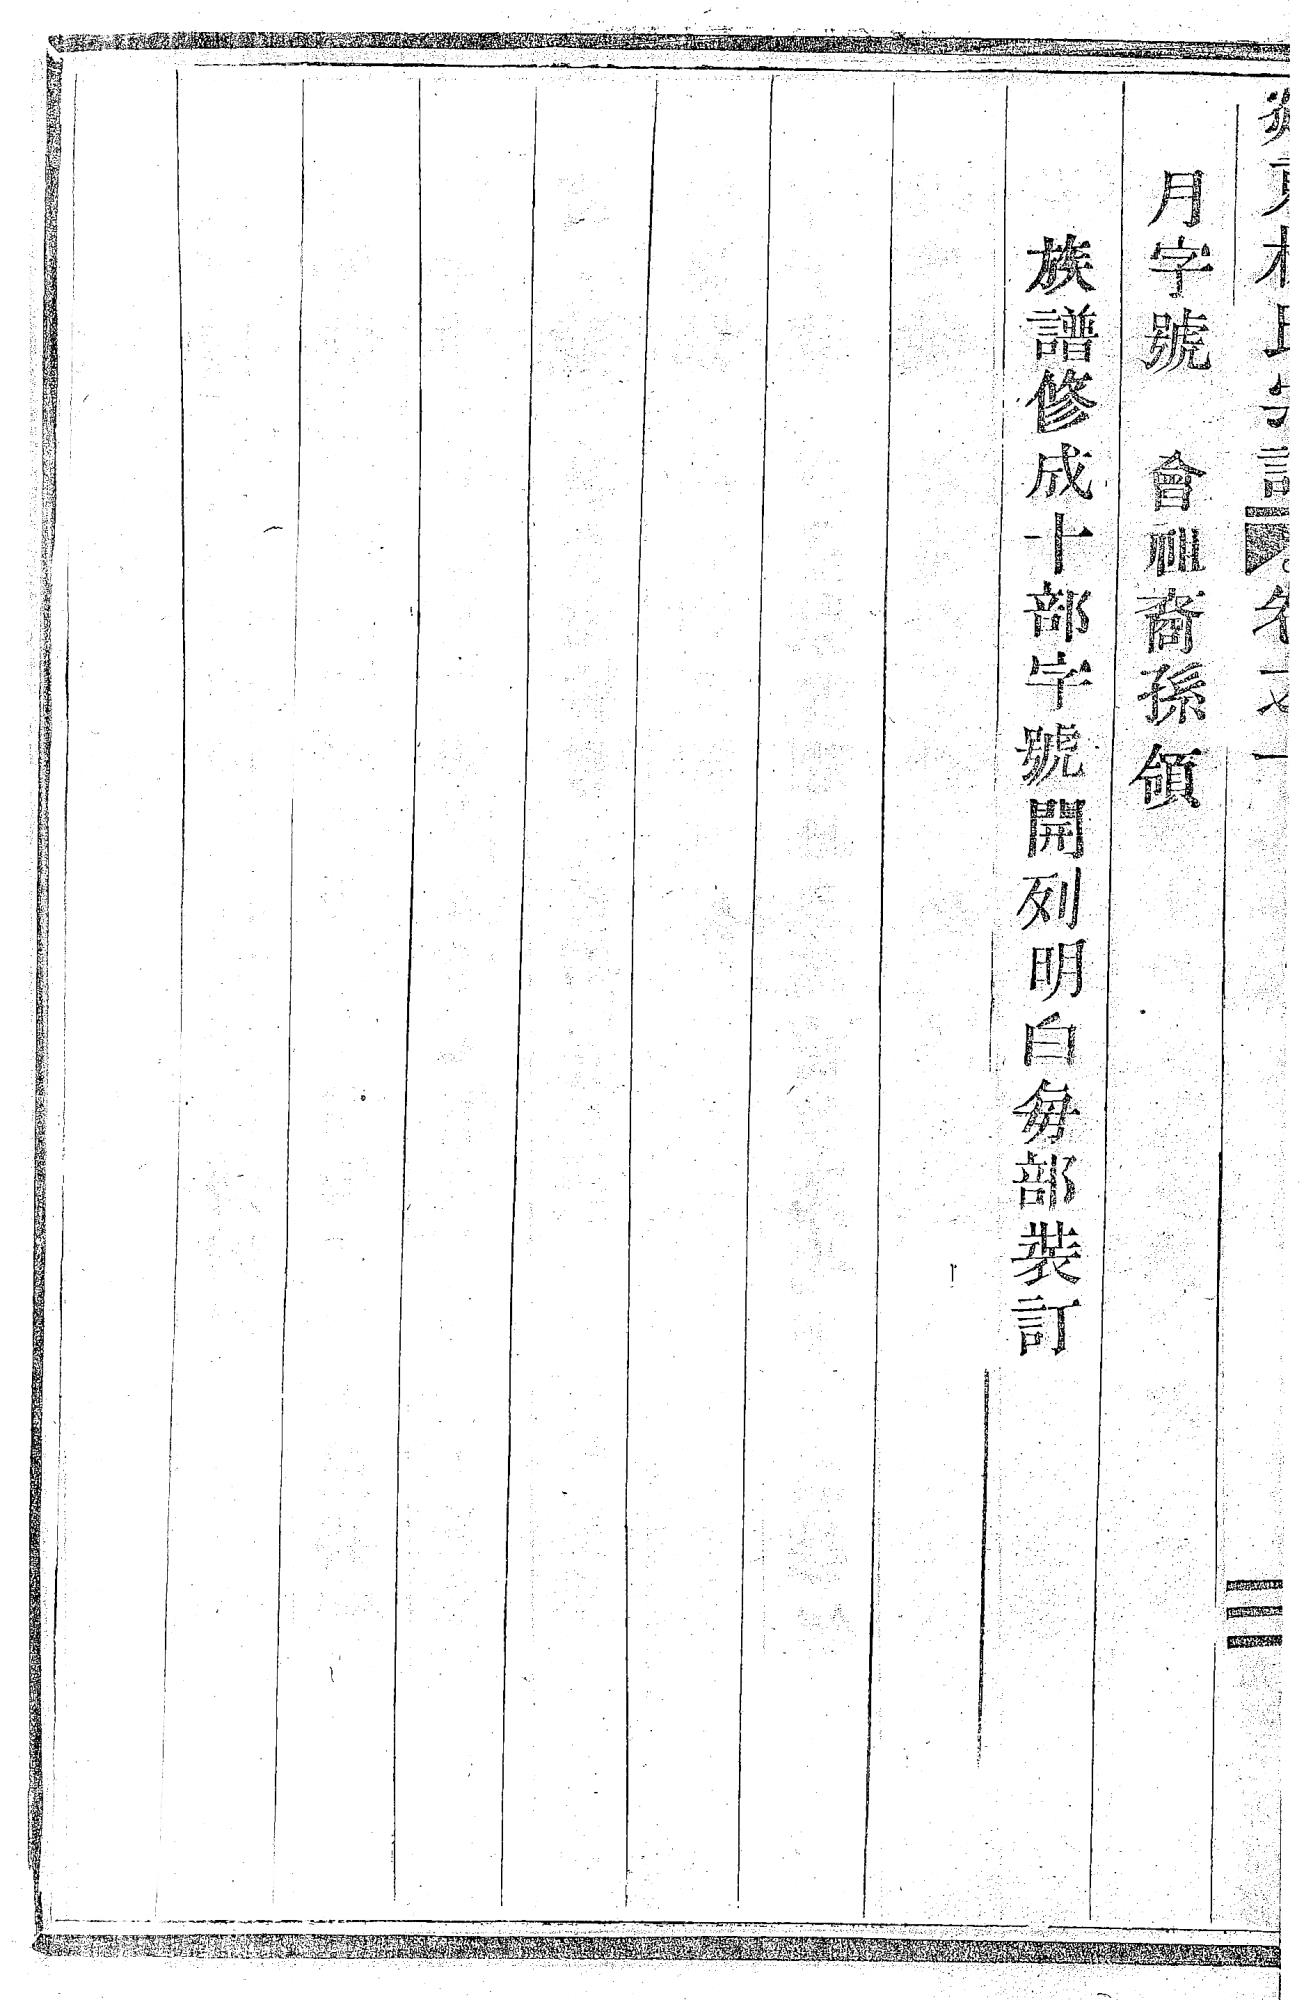 氏宗譜 卷之一
月字號 會祖裔孫領
族譜修成十部字號開列明白每部裝訂